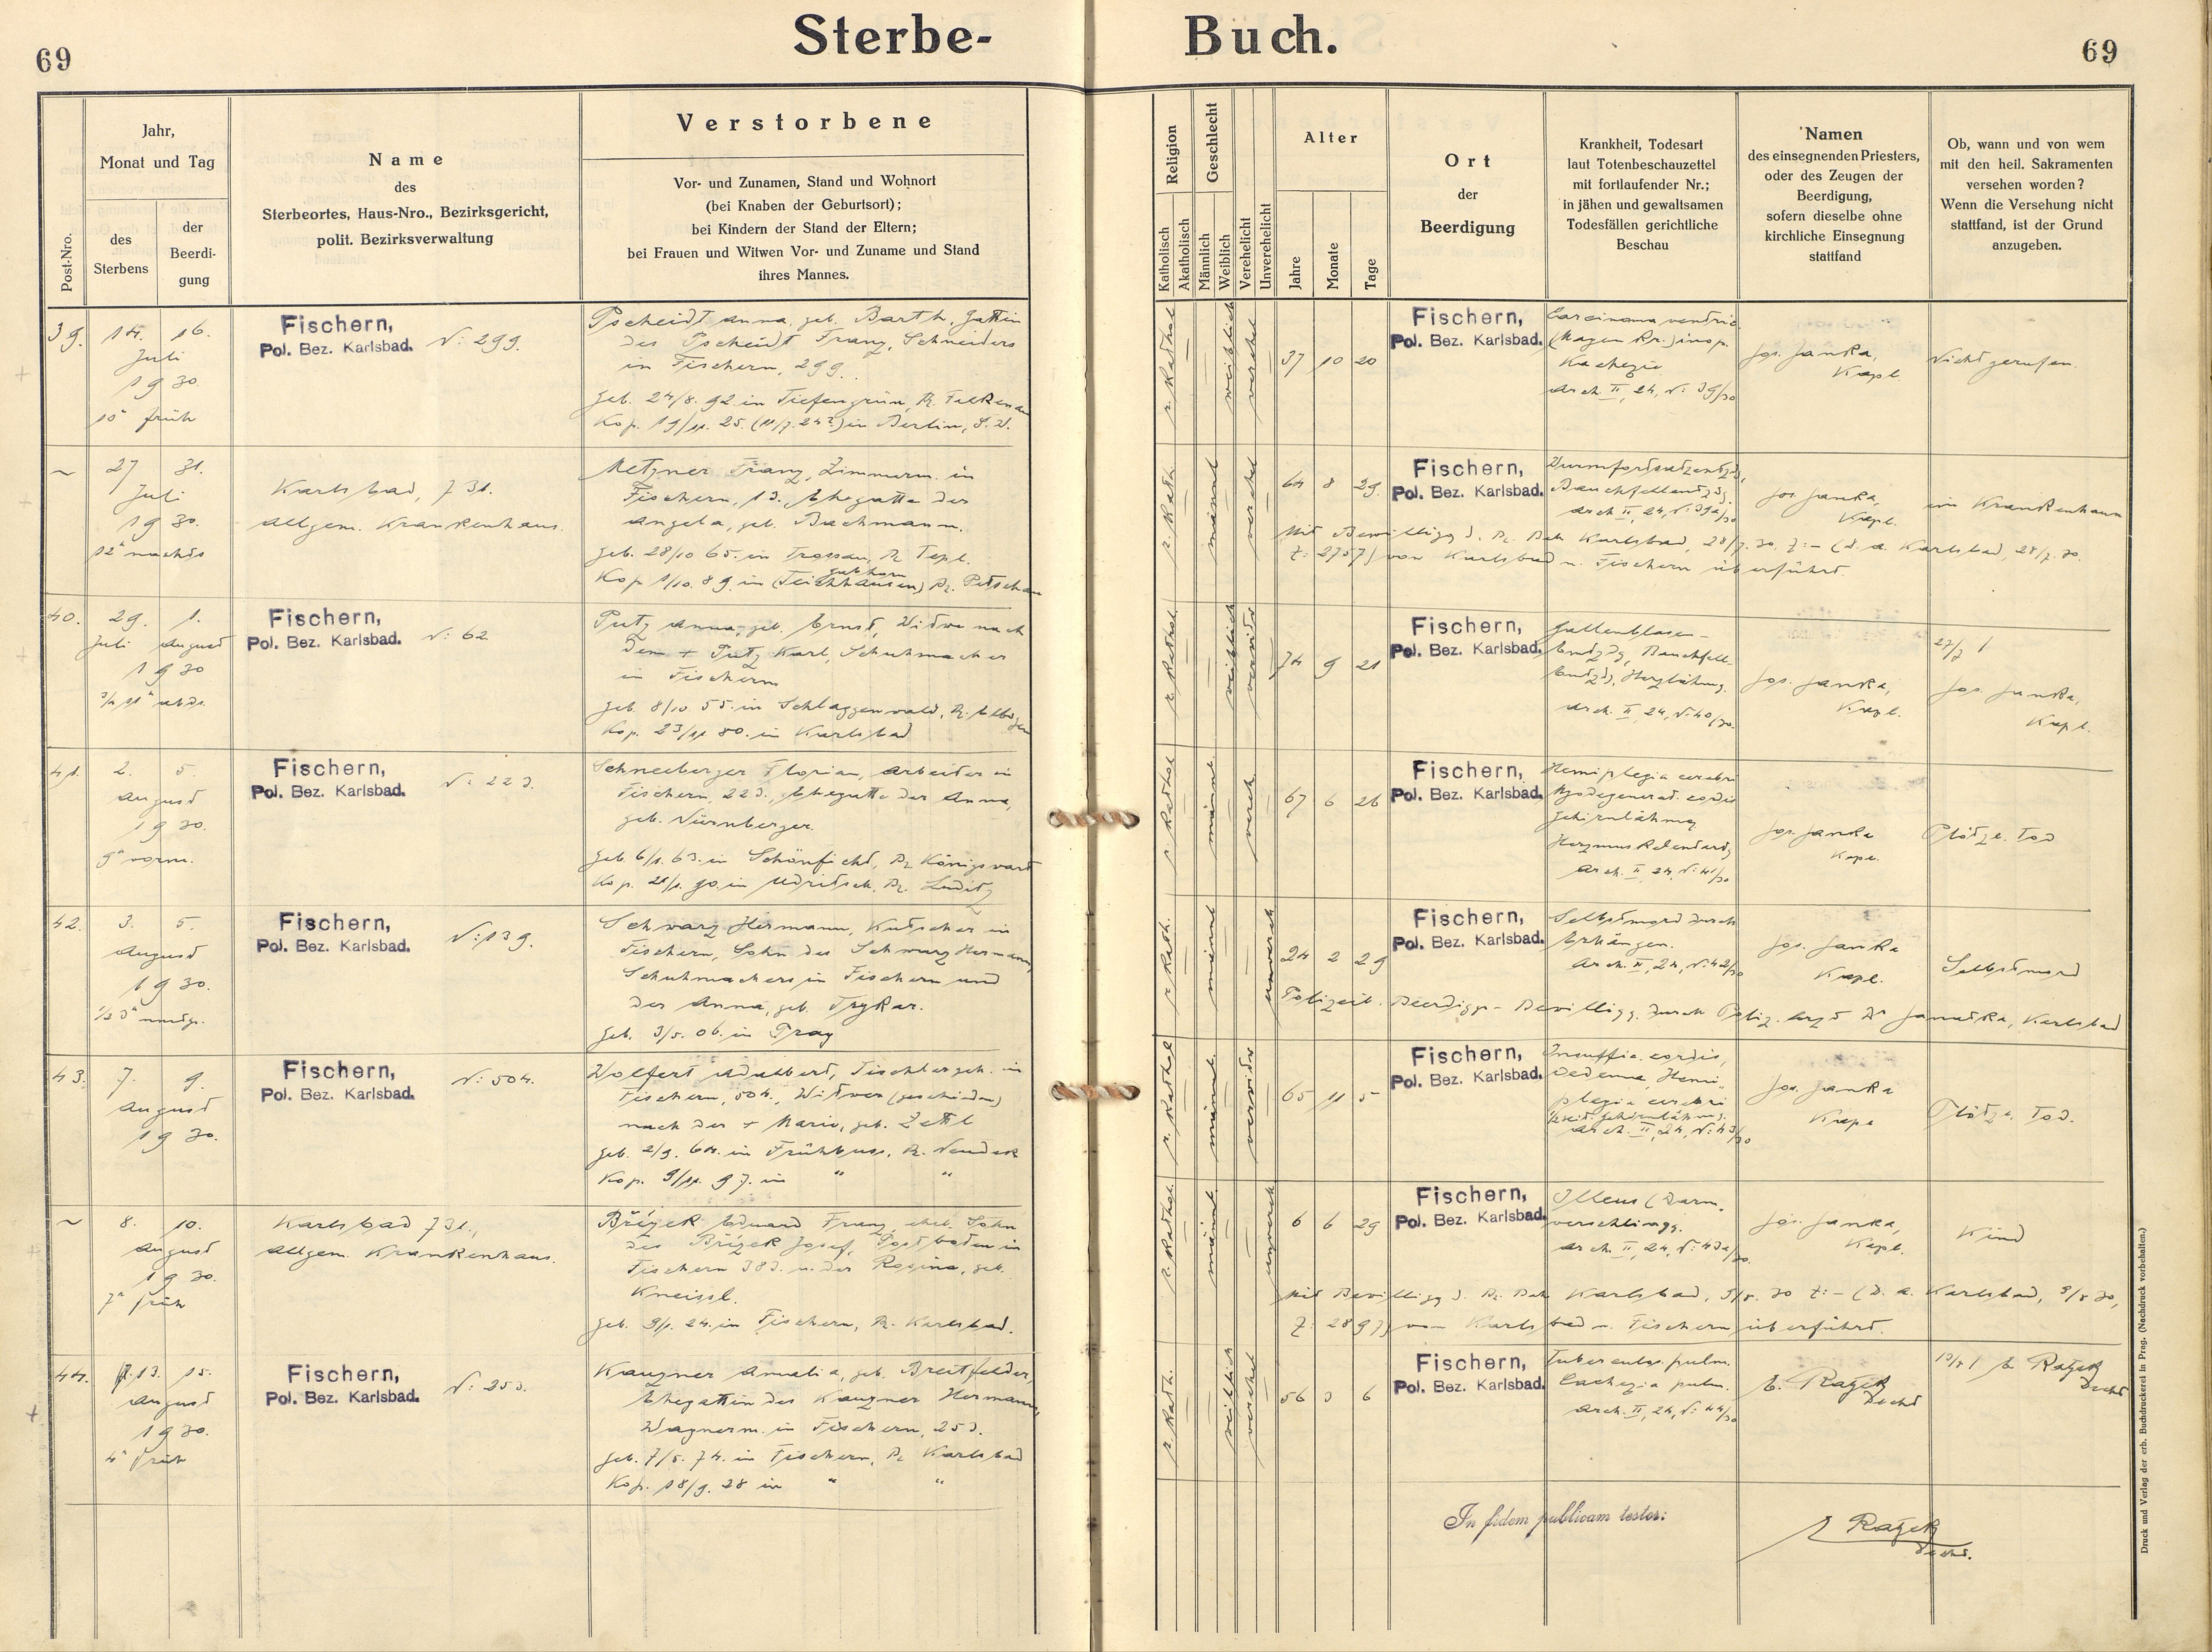 69
Sterbe-
Buch.
69
Post-Nro.
Jahr,
Monat und Tag
des
Sterbens
der
Beerdi-
gung
Name
des
Sterbeortes, Haus-Nro., Bezirksgericht,
polit. Bezirksverwaltung
Verstorbene
Vor- und Zunamen, Stand und Wohnort
(bei Knaben der Geburtsort);
bei Kindern der Stand der Eltern;
bei Frauen und Witwen Vor- und Zuname und Stand
ihres Mannes.
Religion
Katholisch
Akatholisch
Geschlecht
Männlich
Weiblich
Verehelicht
Unverehelicht
Alter
Jahre
Monate
Tage
Ort
der
Beerdigung
Krankheit, Todesart
laut Totenbeschauzettel
mit fortlaufender Nr.;
in jähen und gewaltsamen
Todesfällen gerichtliche
Beschau
Namen
des einsegnenden Priesters,
oder des Zeugen der
Beerdigung,
sofern dieselbe ohne
kirchliche Einsegnung
stattfand
Ob, wann und von wem
mit den heil. Sakramenten
versehen worden?
Wenn die Versehung nicht
stattfand, ist der Grund
anzugeben.
39.
14. 16.
Juli
1930.
10h früh
Fischern,
Pol. Bez. Karlsbad. N: 299.
Pscheidt Anna, geb. Barth, Gattin
des Pscheidt Franz, Schneiders
in Fischern, 299.
geb. 24/8. 92. in Tiefengrün, Bz. Falkenau
Kop. 19/11. 25. in Berlin, S. W.
r. kathol.
weiblich
verehel
37 10 20
Fischern,
Pol. Bez. Karlsbad.
Carcinoma ventric.
(Magen Kr.) inop.
Kachexie
Arch. II, 24, N: 39/30
Jos. Janka,
Kapl.
Nicht gerufen.
~
27 31.
Juli
1930.
12h nachts
Karlsbad, 731.
Allgem. Krankenhaus.
Metzner Franz, Zimmerm. in
Fischern, 13., Ehegatte der
Angela, geb. Bachmann.
geb. 28/10 65. in Trossau, Bz Tepl.
Kop 1/10. 89. in (Teichhäusen) Bz. Petschau
r. kath.
männl
verehel
64 8 29.
Fischern,
Pol. Bez. Karlsbad.
Wurmfortsatzentzdg,
Bauchfellentzdg.
Arch II, 24, N: 39a/30
Jos. Janka,
Kapl.
im Krankenhaus
Mit Bewilligg d. Bz. Beh Karlsbad, 28/7. 30. Z: – (D. a. Karlsbad, 28/7. 30.
Z: 2757) von Karlsbad n. Fischern überführt.
40.
29. 1.
Juli August
1930
3/4 11h abds.
Fischern,
Pol. Bez. Karlsbad. N: 62
Putz Anna, geb. Ernst, Witwe nach
dem + Putz Karl, Schuhmacher
in Fischern
geb. 8/10 55. in Schlaggenwald, Bz. Elbogen
Kop. 23/11. 80. in Karlsbad
r. kathol.
weiblich
verwitw
74 9 21
Fischern,
Pol. Bez. Karlsbad.
Gallenblasen-
Entzdg, Bauchfell-
Entzdg, Herzlähmg.
Arch. II, 24, N: 40/30.
Jos. Janka,
Kapl.
27/7 /
Jos. Janka,
Kapl.
41.
2. 5.
August
1930.
9h vorm.
Fischern,
Pol. Bez. Karlsbad. N: 223.
Schneeberger Florian, Arbeiter in
Fischern, 223., Ehegatte der Anna,
geb. Nürnberger.
geb. 6/1. 63. in Schönficht, Bz Königswart
Kop. 21/1. 90. in Udritsch, Bz. Luditz
r. kathol
männl
verehel
67 6 26
Fischern,
Pol. Bez. Karlsbad.
Hemiplegia cerebri
Myodegenerat. cordis
Gehirnlähmg
Arch. II, 24, N: 41/30
Jos. Janka
Kapl.
Plötzl. Tod
42.
3. 5.
August
1930.
1/2 3h nmdg.
Fischern,
Pol. Bez. Karlsbad. N: 139.
Schwarz Hermann, Kutscher in
Fischern, Sohn des Schwarz Hermann,
Schuhmachers in Fischern und
der Anna, geb. Trykar.
geb. 3/5. 06. in Prag
r. kath.
männl
unvereh
24 2 29
Fischern,
Pol. Bez. Karlsbad.
Selbstmord durch
Erhängen.
Arch. II, 24, N: 42/30
Jos. Janka
Kapl.
Selbstmord
Polizeil. Beerdiggs-Bewilligg. durch Poliz. Arzt Dr Janatka, Karlsbad
43.
7. 9.
August
1930.
Fischern,
Pol. Bez. Karlsbad. N: 504.
Wolfert Adalbert, Tischlergeh. in
Fischern, 504., Witwer (geschieden)
nach der + Marie, geb. Zettl
geb. 2/9. 64. in Frühbuss, Bz. Neudek
Kop. 9/11. 97. in " "
r. kathol
männl.
verwitw
65 11 5
Fischern,
Pol. Bez. Karlsbad.
Insuffic. cordis,
Oedema, Hemi-
plegia cerebri
Arch. II, 24, N: 43/30
Jos. Janka
Kapl
Plötzl. Tod.
~
8. 10.
August
1930.
7h früh
Karlsbad 731.,
Allgem. Krankenhaus.
Břízek Eduard Franz, ehel. Sohn
des Břízek Josef, Postboten in
Fischern 383. u. der Regina, geb.
Kneissl.
geb. 9/1. 24. in Fischern, Bz. Karlsbad.
r. kathol.
männl
unvereh
6 6 29
Fischern,
Pol. Bez. Karlsbad.
Illeus (Darm-
verschlingg.
Arch. II, 24, N: 43a/30.
Jos. Janka,
Kapl.
Kind
Mit Bewilligg d. Bz. Beh Karlsbad, 9/8. 30 Z: – (D. a. Karlsbad, 9/8 30,
Z: 2897) von Karlsbad n. Fischern überführt.
44.
13. 15.
August
1930.
4h früh
Fischern,
Pol. Bez. Karlsbad. N: 253.
Kauzner Amalia, geb. Breitfelder,
Ehegattin des Kauzner Hermann,
Wagnerm. in Fischern, 253.
geb. 7/5. 74. in Fischern, Bz Karlsbad
Kop. 18/9. 28 in " "
r. kath.
weiblich
verehel
56 3 6
Fischern,
Pol. Bez. Karlsbad.
Tuberculos. pulm.
Cachexia pulm.
Arch. II, 24, N: 44/30
E. Ratzek
Decht
E. Ratzek
Decht
In fidem publicam testor:
Ratzek
Decht.
Druck und Verlag der erb. Buchdruckerei in Prag. (Nachdruck vorbehalten.)